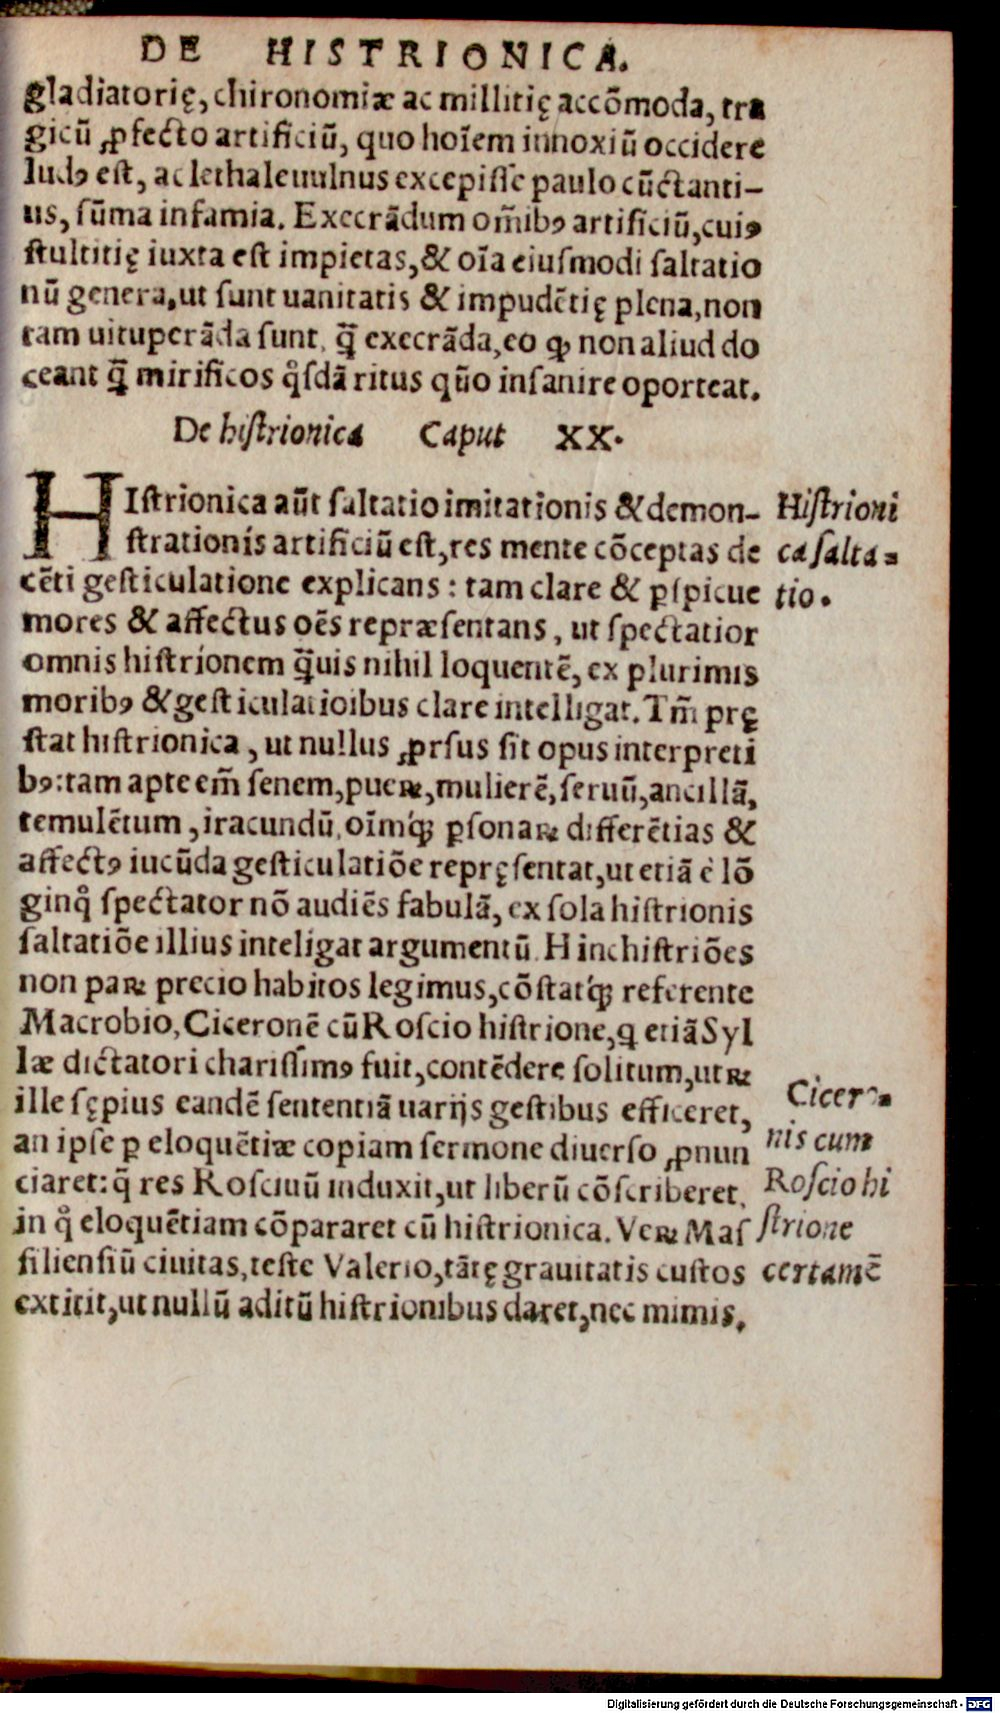 DE HISTRIONICA.
gladiatorię, chironomiæ ac millitię accõmoda, tra
gicũ ꝓfecto artificiũ, quo hoĩem innoxiũ occidere
ludꝰ est, ac lethale uulnus excepisse paulo cũctanti-
us, sũma infamia. Execrãdum om̃ibꝰ artificiũ, cuiꝰ
stultitię iuxta est impietas, & oĩa eiusmodi saltatio
nũ genera, ut sunt uanitatis & impudẽtię plena, non
tam uituperãda sunt, q̃ execrãda, eo ꝙ non aliud do
ceant q̃ mirificos qͦsdã ritus qũo insanire oporteat.
De histrionica Caput XX.
HIstrionica aũt saltatio imitationis & demon-
strationis artificiũ est, res mente cõceptas de
cẽti gesticulatione explicans: tam clare & ꝑspicue
mores & affectus oẽs repræsentans, ut spectatior
omnis histrionem q̃uis nihil loquentẽ, ex plurimis
moribꝰ & gesticulatioibus clare intelligat. Tm̃ prę
stat histrionica, ut nullus ꝓrsus sit opus interpreti
bꝰ: tam apte em̃ senem, pueꝝ, mulierẽ, seruũ, ancillã,
temulẽtum, iracundũ, oĩmq́ꝫ ꝑsonaꝝ differẽtias &
affectꝰ iucũda gesticulatiõe repręsentat, ut etiã è lõ
ginqͦ spectator nõ audiẽs fabulã, ex sola histrionis
saltatiõe illius inteligat argumentũ. Hinc histriões
non paꝝ precio habitos legimus, cõstatq́ꝫ referente
Macrobio, Ciceronẽ cũ Roscio histrione, q etiã Syl
læ dictatori charissimꝰ fuit, contẽdere solitum, utꝝ
ille sępius eandẽ sententiã uarijs gestibus efficeret,
an ipse ꝑ eloquẽtiæ copiam sermone diuerso ꝓnun
ciaret: q̃ res Rosciuũ induxit, ut liberũ cõscriberet,
in qͦ eloquẽtiam cõpararet cũ histrionica. Veꝝ Mas
siliensiũ ciuitas, teste Valerio, tãtę grauitatis custos
extitit, ut nullũ aditũ histrionibus daret, nec mimis,
Histrioni
ca salta-
tio.
Cicero-
nis cum
Roscio hi
strione
certamẽ
Digitalisierung gefördert durch die Deutsche Forschungsgemeinschaft - DFG